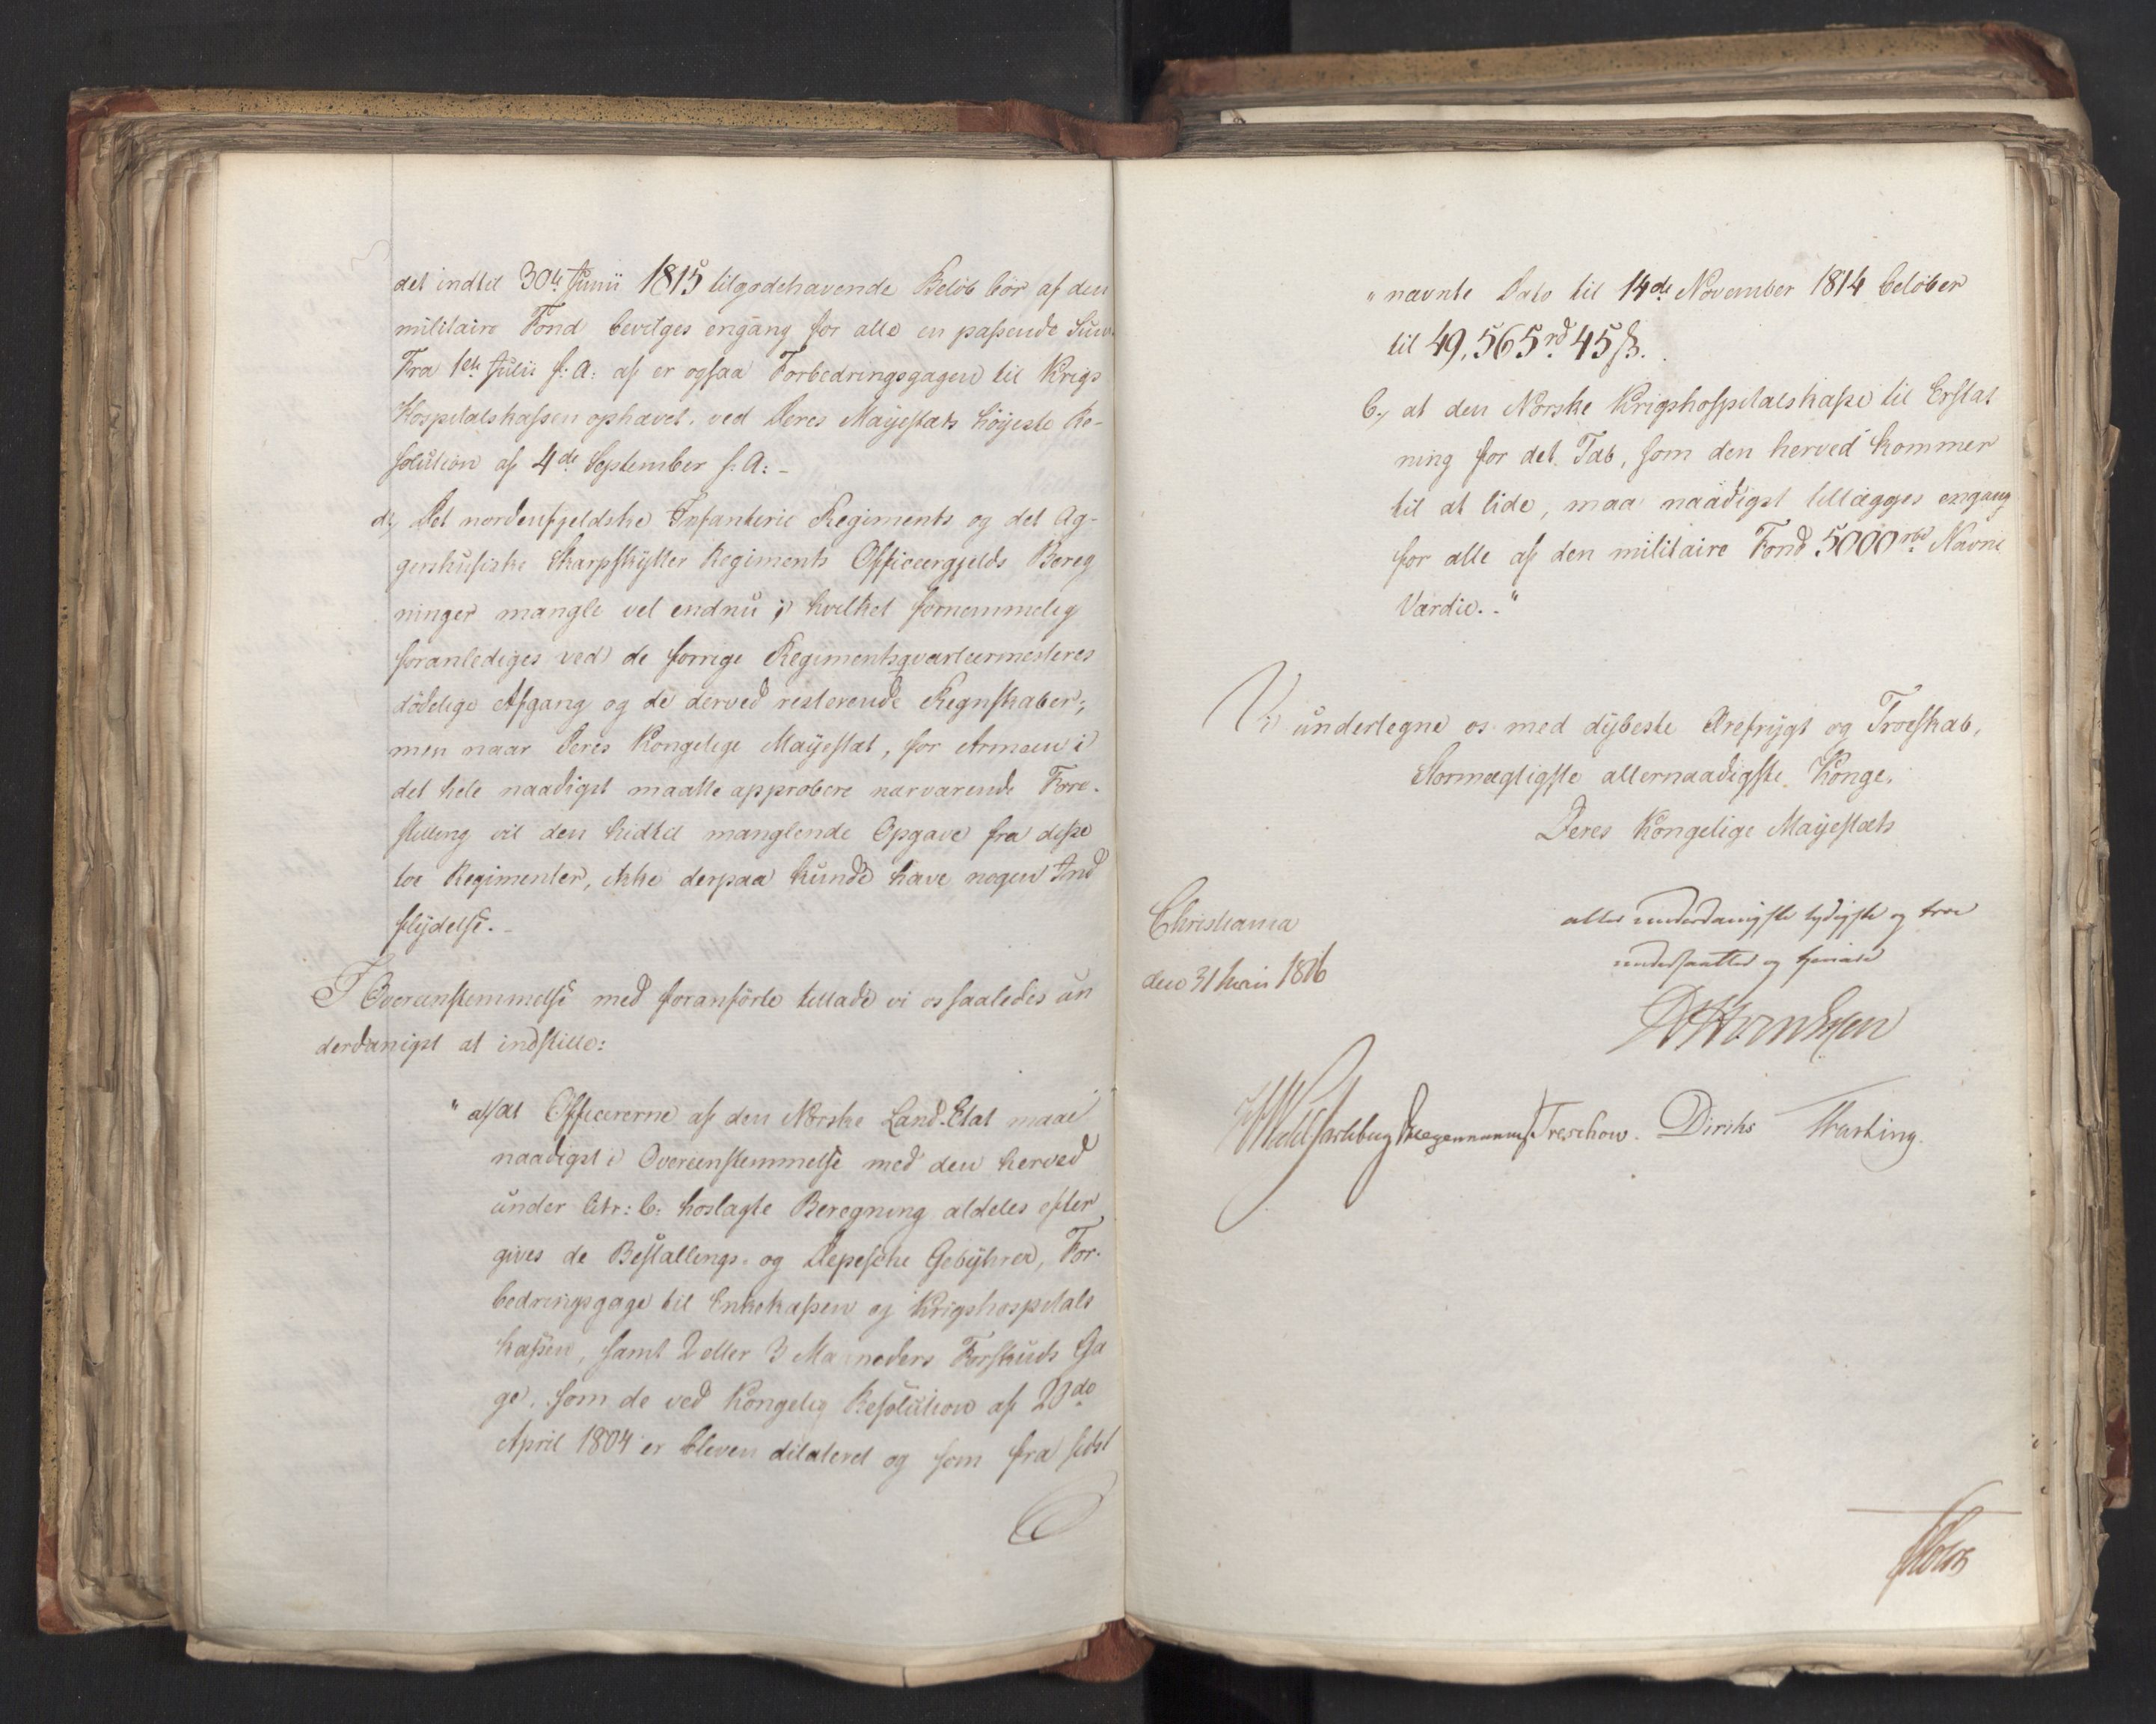 det indtil 30te Junii 1815 tilgodehavende Beløb bør af den
militaire Fond bevilges engang for alle en passende Sum.
Fra 1ste Julii f: A: af er ogsaa Forbedringsgagen til Krigs
Hospitalskassen ophævet, ved Deres Mayestæts høyeste Re-
solution af 4de September f: A: –
d., Det nordenfjeldske Infanterie Regiments og det Ag-
gershusiske Skarpskytter Regiments Officeergjelds Bereg
ninger mangle vel endnu; hvilket fornemmelig
foranlediges ved de forrige Regimentsqvarteermesteres
dødelige Afgang og de derved resterende Regnskaber;
men naar Deres Kongelige Mayestæt, for Armeen i
det hele naadigst maatte approbere nærværende Fore-
stilling vil den hidtil manglende Opgave fra disse
toe Regimenter, ikke derpaa kunde have nogen Ind
flydelse. –
I Overeenstemmelse med foranførte tillade vi os saaledes un
derdanigst at indstille:
" a/ at Officererne af den Norske Land-Etat maae
naadigst i Overeenstemmelse med den herved
under Litr: C: hoslagte Beregning aldeles efter
gives de Bestallings- og Depesche Gebyhrer, For-
bedringsgage til Enkekassen og Krigshospitals
kassen, samt 2 eller 3 Maaneders Forskuds Ga
ge, som de ved Kongelig Resolution af 20de
April 1804 er bleven dilateret og som fra sidst
" nævnte Dato til 14de November 1814 beløber
til 49,565 rd. 45 ß.
b., at den Norske Krigshospitalskasse til Erstat
ning for det Tab, som den herved kommer
til at lide, maa naadigst tillægges engang
for alle af den militaire Fond 5000 rbd. Navne
Værdie. –"
Vi underlegne os med dybeste Ærefrygt og Troeskab,
Stormægtigste allernaadigste Konge,
Deres Kongelige Mayestæts
Christiania
den 31 Maii 1816
aller underdanigste lydigste og troe
undersaatter og tjenere
Wedel Jarlsberg Treschow. Diriks Thastrup